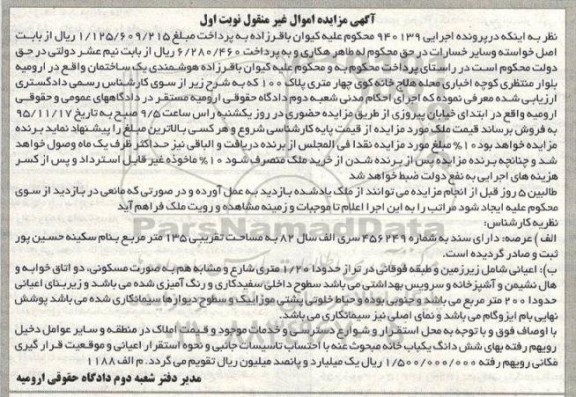 آگهی مزایده اموال غیر منقول نوبت اول
نظر به اینکه در پرونده اجرایی ۹۴۰۱۳۹ محکوم علیه کیوان باقرزاده به پرداخت مبلغ ۱/۱۲۵/۶۰۹/۲۱۵ ریال از بابت
اصل خواسته و سایر خسارات در حق محکوم له طاهر هکاری و به پرداخت ۶/۲۸۰/۴۶۰ ریال از بابت نیم عشر دولتی در حق
دولت محکوم است در راستای پرداخت محکوم به و محکوم علیه کیوان باقرزاده هوشمندی یک ساختمان واقع در ارومیه
بلوار منتظری کوچه اخباری محله هلاج خانه کوی چهار متری پلاک ۱۰۰ که به شرح زیر از سوی کارشناس رسمی دادگستری
ارزیابی شده معرفی نموده که اجرای احکام مدنی شعبه دوم دادگاه حقوقی ارومیه مستقر در دادگاههای عمومی و حقوقی
ارومیه واقع در ابتدای خیابان پیروزی از طریق مزایده حضوری در روز یکشنبه راس ساعت ۹/۵ صبح به تاریخ ۹۵/۱۱/۱۷
به فروش برساند قیمت ملک مورد مزایده از قیمت پایه کارشناسی شروع و هر کسی بالاترین مبلغ را پیشنهاد نماید برنده
مزایده خواهد بود ۱۰% مبلغ مورد مزایده نقدا فی المجلس از برنده دریافت و الباقی نیز حداکثر ظرف یک ماه وصول خواهد
شد و چنانچه برنده مزایده پس از برنده شدن از خرید ملک منصرف شود ۱۰% ماخوذه غیر قابل استرداد و پس از کسر
هزینه های اجرایی به نفع دولت ضبط خواهد شد
طالبین ۵ روز قبل از انجام مزایده می توانند از ملک یادشده بازدید به عمل آورده و در صورتی که مانعی در بازدید از سوی
محکوم علیه ایجاد شود مراتب را به این اجرا اعلام تا موجبات و زمینه مشاهده و رویت ملک فراهم آید
نظریه کارشناس:
الف ) عرصه: دارای سند به شماره ۴۵۶۲۴۹ سری الف سال ۸۲ به مساحت تقریبی ۱۳۵ متر مربع بنام سکینه حسین پور
ثبت و صادر گردیده است.
ب): اعیانی شامل زیرزمین و طبقه فوقانی در تراز حدودا ۱/۲۰ متری شارع و مشابه هم به صورت مسکونی، دو اتاق خوابه و
هال نشیمن و آشپزخانه و سرویس بهداشتی می باشد سطوح داخلی سفیدکاری و رنگ آمیزی شده می باشد و زیربنای اعیانی
حدودا ۲۰۰ متر مربع می باشد و جنوبی بوده و حیاط خلوتی پشتی موزاییک و سطوح دیوارها سیمانکاری شده می باشد پوشش
نهایی بام ایزوگام می باشد و نمای اصلی نیز سیمانکاری می باشد.
با اوصاف فوق و با توجه به محل استقرار و شوارع دسترسی و خدمات موجود و قیمت املاک در منطقه و سایر عوامل دخیل
رویهم رفته بهای شش دانگ یکباب خانه مبحوث عنه با احتساب تاسیسات جانبی و نحوه استقرار اعیانی و موقعیت قرار گیری
مکانی رویهم رفته ۱/۵۰۰/۰۰۰/۰۰۰ ریال یک میلیارد و پانصد میلیون ریال تقویم می گردد. م الف ۱۱۸۸
مدیر دفتر شعبه دوم دادگاه حقوقی ارومیه